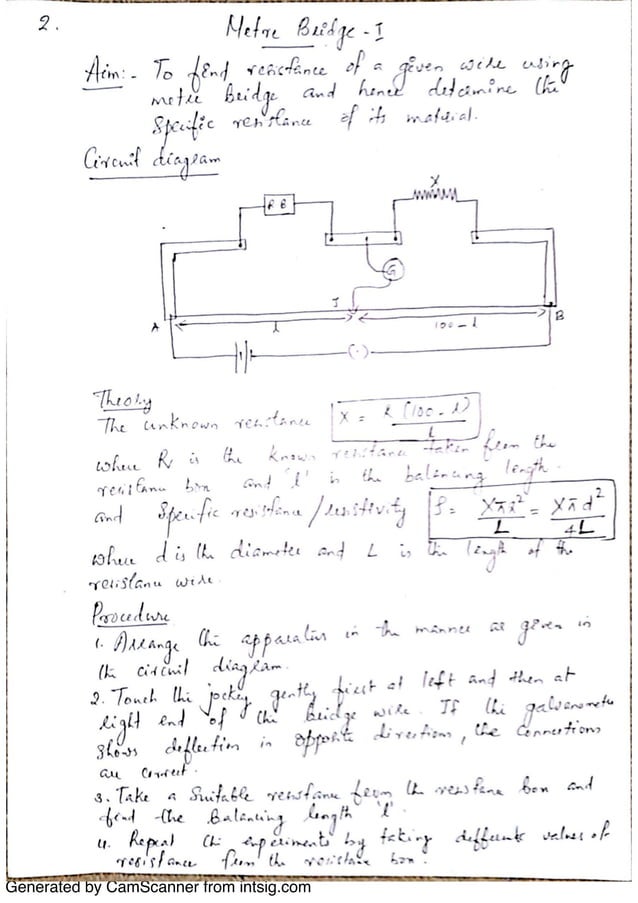 2.
Metre Bridge - I
Aim:- To find resistance of a given wire using
metre bridge and hence determine the
specific resistance of its material.
Circuit diagram
R B
X
G
J
A
l
100 - l
B
Theory
The unknown resistance X = R (100 - l) / l
where R is the known resistance taken from the
resistance box and 'l' is the balancing length.
and Specific resistance / resistivity ρ = Xπr² / L = Xπd² / 4L
where d is the diameter and L is the length of the
resistance wire.
Procedure
1. Arrange the apparatus in the manner as given in
the circuit diagram.
2. Touch the jockey gently first at left and then at
right end of the bridge wire. If the galvanometer
shows deflection in opposite directions, the connections
are correct.
3. Take a suitable resistance from the resistance box and
find the balancing length 'l'.
4. Repeat the experiments by taking different values of
resistance from the resistance box.
Generated by CamScanner from intsig.com